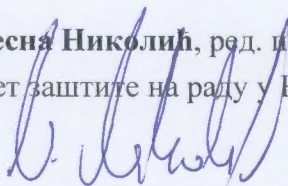 есна Николић, ред. п
ет заштите на раду у